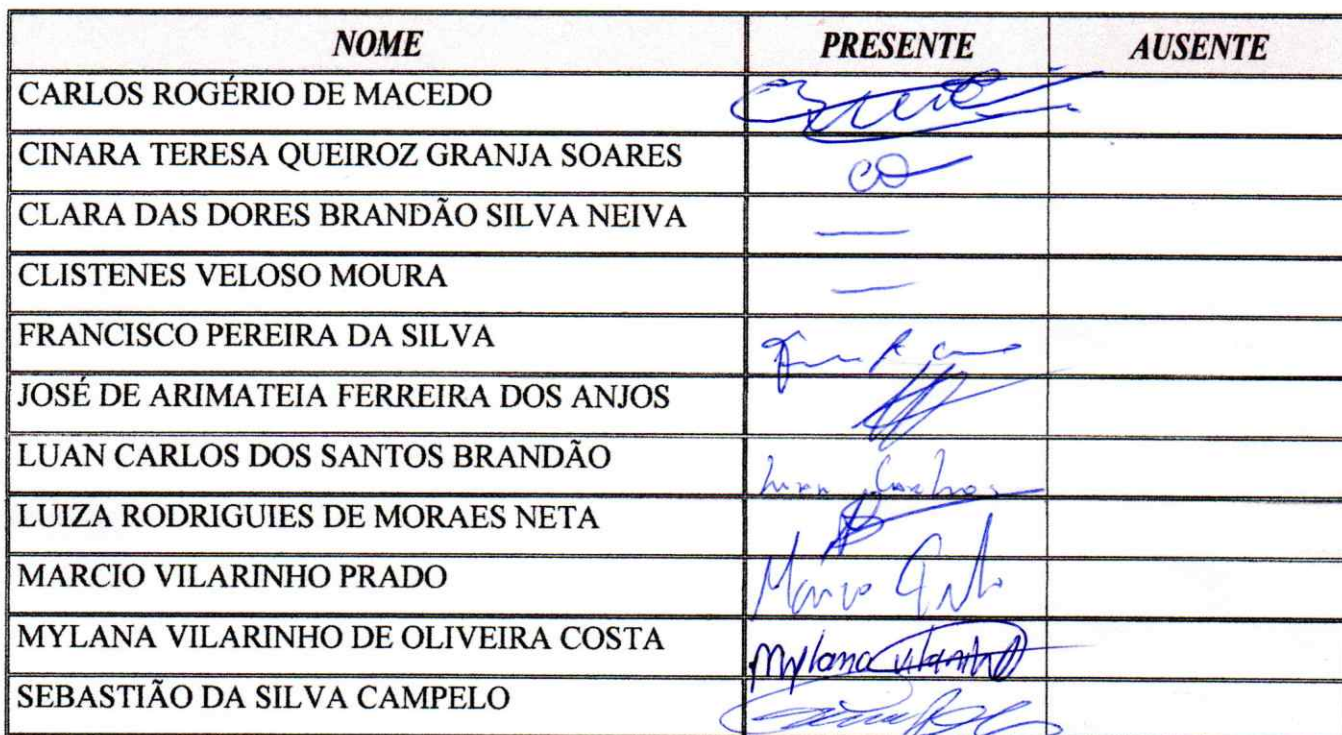 NOME PRESENTE AUSENTE
CARLOS ROGÉRIO DE MACEDO
CINARA TERESA QUEIROZ GRANJA SOARES
CLARA DAS DORES BRANDÃO SILVA NEIVA —
CLISTENES VELOSO MOURA —
FRANCISCO PEREIRA DA SILVA
JOSÉ DE ARIMATEIA FERREIRA DOS ANJOS
LUAN CARLOS DOS SANTOS BRANDÃO Luan Carlos
LUIZA RODRIGUIES DE MORAES NETA
MARCIO VILARINHO PRADO
MYLANA VILARINHO DE OLIVEIRA COSTA Mylana Vilarinho
SEBASTIÃO DA SILVA CAMPELO